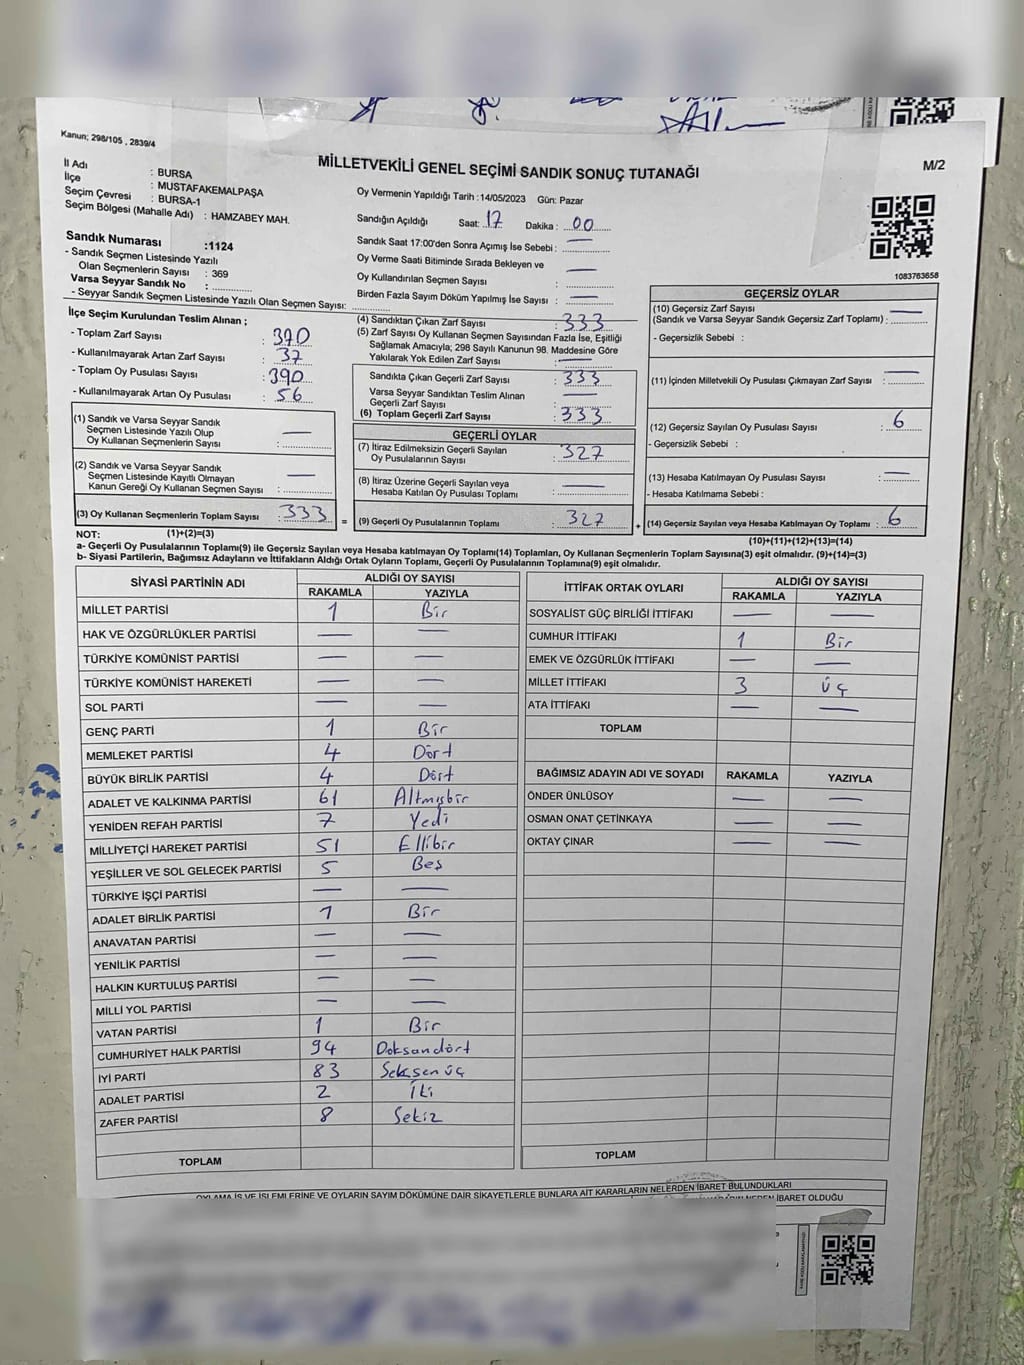 Kanun; 298/105 , 2839/4
MİLLETVEKİLİ GENEL SEÇİMİ SANDIK SONUÇ TUTANAĞI
M/2
İl Adı : BURSA
İlçe : MUSTAFAKEMALPAŞA
Seçim Çevresi : BURSA-1
Seçim Bölgesi (Mahalle Adı) : HAMZABEY MAH.
Sandık Numarası :1124
- Sandık Seçmen Listesinde Yazılı
Olan Seçmenlerin Sayısı : 369
Varsa Seyyar Sandık No :
- Seyyar Sandık Seçmen Listesinde Yazılı Olan Seçmen Sayısı:
İlçe Seçim Kurulundan Teslim Alınan ;
- Toplam Zarf Sayısı : 390
- Kullanılmayarak Artan Zarf Sayısı : 37
- Toplam Oy Pusulası Sayısı : 390
- Kullanılmayarak Artan Oy Pusulası : 56
(1) Sandık ve Varsa Seyyar Sandık
Seçmen Listesinde Yazılı Olup
Oy Kullanan Seçmenlerin Sayısı : —
(2) Sandık ve Varsa Seyyar Sandık
Seçmen Listesinde Kayıtlı Olmayan
Kanun Gereği Oy Kullanan Seçmen Sayısı : —
(3) Oy Kullanan Seçmenlerin Toplam Sayısı : 333
Oy Vermenin Yapıldığı Tarih :14/05/2023 Gün: Pazar
Sandığın Açıldığı Saat: 17 Dakika : 00
Sandık Saat 17:00'den Sonra Açımış İse Sebebi : —
Oy Verme Saati Bitiminde Sırada Bekleyen ve
Oy Kullandırılan Seçmen Sayısı : —
Birden Fazla Sayım Döküm Yapılmış İse Sayısı : —
(4) Sandıktan Çıkan Zarf Sayısı : 333
(5) Zarf Sayısı Oy Kullanan Seçmen Sayısından Fazla İse, Eşitliği
Sağlamak Amacıyla; 298 Sayılı Kanunun 98. Maddesine Göre
Yakılarak Yok Edilen Zarf Sayısı : —
Sandıkta Çıkan Geçerli Zarf Sayısı : 333
Varsa Seyyar Sandıktan Teslim Alınan
Geçerli Zarf Sayısı : —
(6) Toplam Geçerli Zarf Sayısı : 333
GEÇERLİ OYLAR
(7) İtiraz Edilmeksizin Geçerli Sayılan
Oy Pusulalarının Sayısı : 327
(8) İtiraz Üzerine Geçerli Sayılan veya
Hesaba Katılan Oy Pusulası Toplamı : —
= (9) Geçerli Oy Pusulalarının Toplamı : 327
1083763658
GEÇERSİZ OYLAR
(10) Geçersiz Zarf Sayısı
(Sandık ve Varsa Seyyar Sandık Geçersiz Zarf Toplamı) : —
- Geçersizlik Sebebi :
(11) İçinden Milletvekili Oy Pusulası Çıkmayan Zarf Sayısı : —
(12) Geçersiz Sayılan Oy Pusulası Sayısı : 6
- Geçersizlik Sebebi :
(13) Hesaba Katılmayan Oy Pusulası Sayısı : —
- Hesaba Katılmama Sebebi :
+ (14) Geçersiz Sayılan veya Hesaba Katılmayan Oy Toplamı : 6
NOT: (1)+(2)=(3)
(10)+(11)+(12)+(13)=(14)
a- Geçerli Oy Pusulalarının Toplamı(9) ile Geçersiz Sayılan veya Hesaba katılmayan Oy Toplamı(14) Toplamları, Oy Kullanan Seçmenlerin Toplam Sayısına(3) eşit olmalıdır. (9)+(14)=(3)
b- Siyasi Partilerin, Bağımsız Adayların ve İttifakların Aldığı Ortak Oyların Toplamı, Geçerli Oy Pusulalarının Toplamına(9) eşit olmalıdır.
SİYASİ PARTİNİN ADI ALDIĞI OY SAYISI
RAKAMLA YAZIYLA
MİLLET PARTİSİ 1 Bir
HAK VE ÖZGÜRLÜKLER PARTİSİ — —
TÜRKİYE KOMÜNİST PARTİSİ — —
TÜRKİYE KOMÜNİST HAREKETİ — —
SOL PARTİ — —
GENÇ PARTİ 1 Bir
MEMLEKET PARTİSİ 4 Dört
BÜYÜK BİRLİK PARTİSİ 4 Dört
ADALET VE KALKINMA PARTİSİ 61 Altmışbir
YENİDEN REFAH PARTİSİ 7 Yedi
MİLLİYETÇİ HAREKET PARTİSİ 51 Ellibir
YEŞİLLER VE SOL GELECEK PARTİSİ 5 Beş
TÜRKİYE İŞÇİ PARTİSİ — —
ADALET BİRLİK PARTİSİ 1 Bir
ANAVATAN PARTİSİ — —
YENİLİK PARTİSİ — —
HALKIN KURTULUŞ PARTİSİ — —
MİLLİ YOL PARTİSİ — —
VATAN PARTİSİ 1 Bir
CUMHURİYET HALK PARTİSİ 94 Doksandört
İYİ PARTİ 83 Seksenüç
ADALET PARTİSİ 2 İki
ZAFER PARTİSİ 8 Sekiz
TOPLAM
İTTİFAK ORTAK OYLARI ALDIĞI OY SAYISI
RAKAMLA YAZIYLA
SOSYALİST GÜÇ BİRLİĞİ İTTİFAKI — —
CUMHUR İTTİFAKI 1 Bir
EMEK VE ÖZGÜRLÜK İTTİFAKI — —
MİLLET İTTİFAKI 3 Üç
ATA İTTİFAKI — —
TOPLAM
BAĞIMSIZ ADAYIN ADI VE SOYADI RAKAMLA YAZIYLA
ÖNDER ÜNLÜSOY — —
OSMAN ONAT ÇETİNKAYA — —
OKTAY ÇINAR — —
TOPLAM
OYLAMA İŞ VE İŞLEMLERİNE VE OYLARIN SAYIM DÖKÜMÜNE DAİR ŞİKAYETLERLE BUNLARA AİT KARARLARIN NELERDEN İBARET BULUNDUKLARI
İBARET OLDUĞU